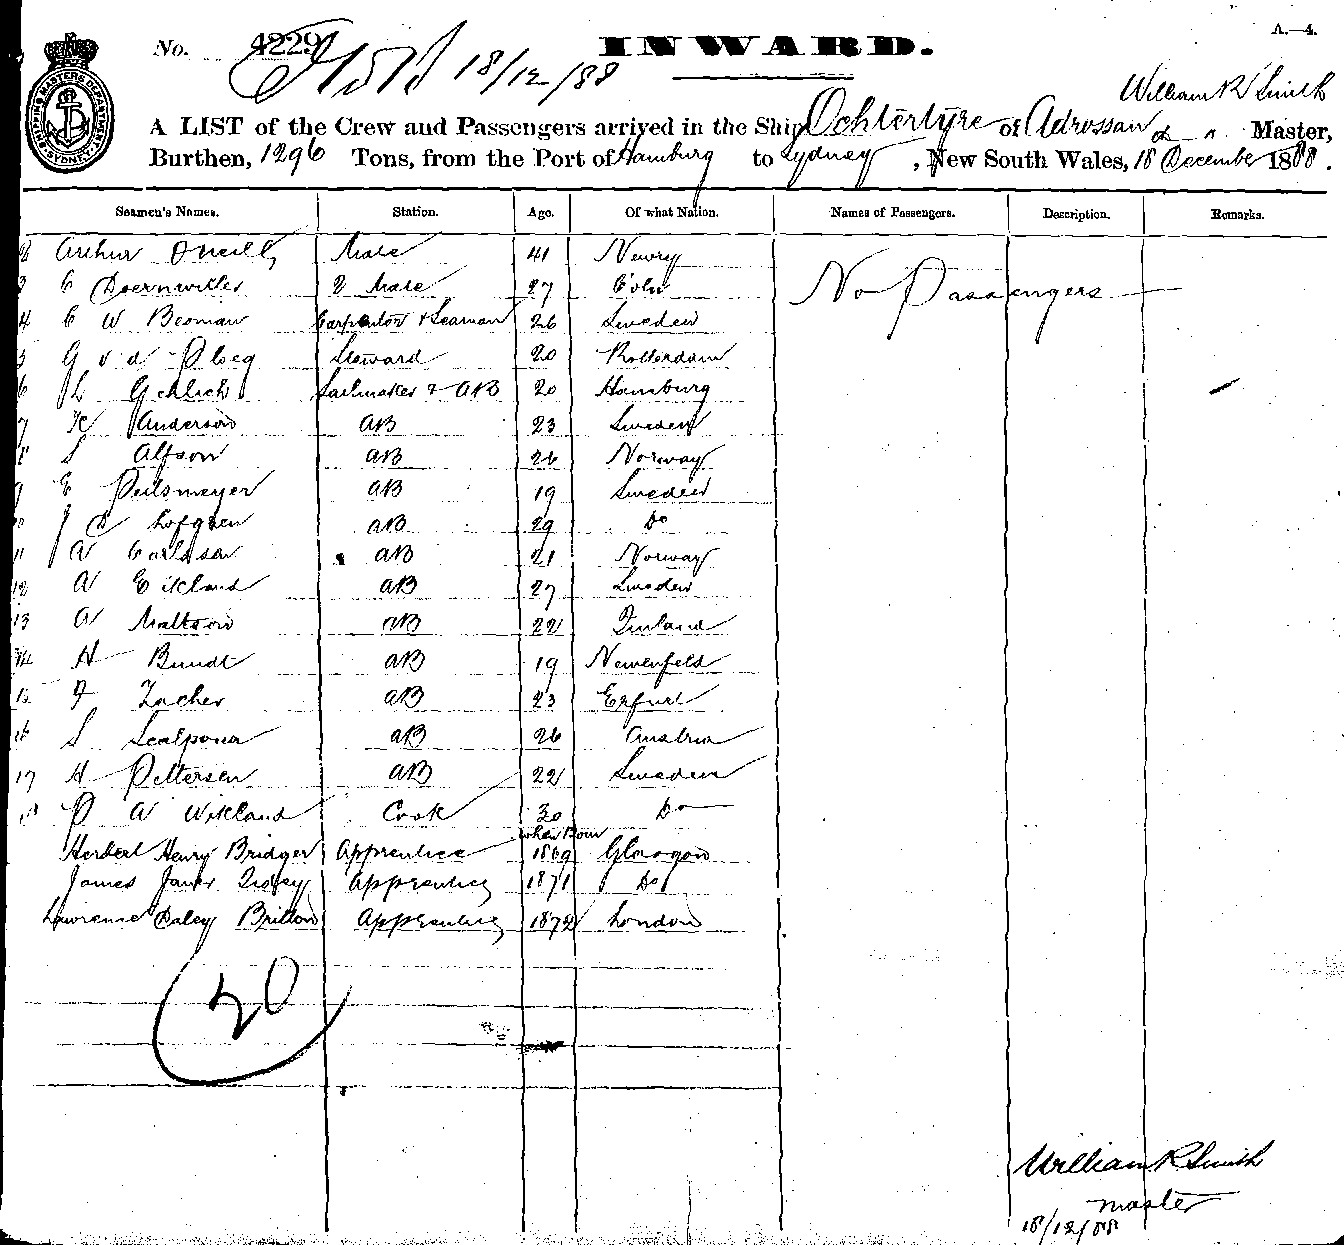 A.—4.
No. 4229 INWARD.
18/12/88
William R Smith
A LIST of the Crew and Passengers arrived in the Ship Ochtertyre of Adrossan Master,
Burthen, 1296 Tons, from the Port of Hamburg to Sydney, New South Wales, 18 December 1888.
SHIPPING MASTERS DEPARTMENT SYDNEY
Seamen's Names. Station. Age. Of what Nation. Names of Passengers. Description. Remarks.
2 Arthur O'Neill Mate 41 Newry
3 C Doernwiller 2 Mate 27 Coln
No Passengers
4 C W Beoman Carpenter & Seaman 26 Sweden
5 G v d Ploeg Steward 20 Rotterdam
6 L Gehlich Sailmaker & AB 20 Hamburg
7 K Anderson AB 23 Sweden
8 S Alfson AB 26 Norway
9 E Peilsmeyer AB 19 Sweden
10 J Lofgren AB 29 Do
11 A Carlsson AB 21 Norway
12 A Eikland AB 27 Sweden
13 A Mattson AB 22 Finland
14 H Bundt AB 19 Newenfeld
15 F Zacher AB 23 Erfurt
16 S Scalpona AB 26 Austria
17 H Pettersen AB 22 Sweden
18 P A Wikland Cook 30 Do
when Born
Herbert Henry Bridger Apprentice 1869 Glasgow
James Apprentice 1871 Do
Lawrence Daley Britton Apprentice 1872 London
20
William R Smith
master
18/12/88